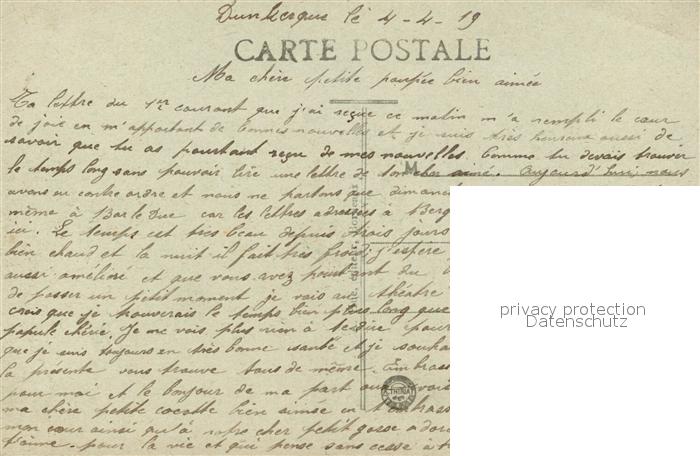 Dunkerque le 4-4-19
CARTE POSTALE
Ma chère petite poupée bien aimée
Ta lettre du 1er courant que j'ai reçue ce matin m'a rempli le cœur
de joie en m'apportant de bonnes nouvelles et je suis très heureux aussi de
savoir que tu as pourtant reçu de mes nouvelles. Comme tu devais trouver
le temps long sans pouvoir lire une lettre de ton cher aimé. Aujourd'hui nous
avons eu contre ordre et nous ne partons que dimanc
même à Bar le Duc car les lettres adressées à Berg
ici. Le temps est très beau depuis trois jours
bien chaud et la nuit il fait très froid j'espère
aussi amélioré et que vous avez pourtant du
de passer un petit moment je vais au théâtre
crois que je trouverais le temps bien plus long que
poupule chérie. Je ne vois plus rien à te dire pour
que je suis toujours en très bonne santé et je souhai
la présente vous trouve tous de même. Embrass
pour moi et le bonjour de ma part aux
ma chère petite cocotte bien aimée en t'embrass
mon cœur ainsi qu'à notre cher petit gosse adoré
t'aime pour la vie et qui pense sans cesse à t
privacy protection
Datenschutz